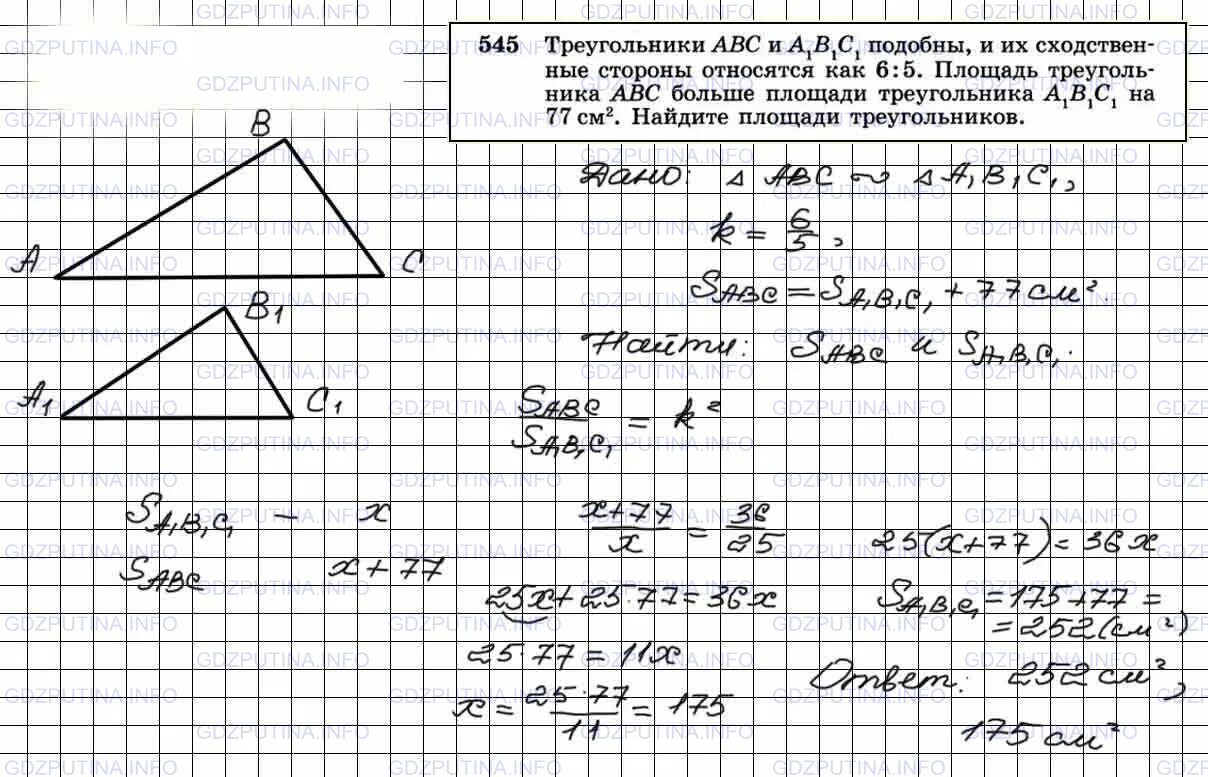 545 Треугольники ABC и A₁B₁C₁ подобны, и их сходствен-
ные стороны относятся как 6 : 5. Площадь треуголь-
ника ABC больше площади треугольника A₁B₁C₁ на
77 см². Найдите площади треугольников.
Дано: △ ABC ∾ △ A₁B₁C₁,
k = 6/5,
S_ABC = S_A₁B₁C₁ + 77 см².
Найти: S_ABC и S_A₁B₁C₁.
B
A
C
B₁
A₁
C₁
S_ABC/S_A₁B₁C₁ = k²
S_A₁B₁C₁ – x
S_ABC x + 77
(x+77)/x = 36/25
25(x+77) = 36x
25x + 25·77 = 36x
25·77 = 11x
x = (25·77)/11 = 175
S_A₁B₁C₁ = 175+77 =
= 252 (см²)
Ответ: 252 см²,
175 см²
GDZPUTINA.INFO